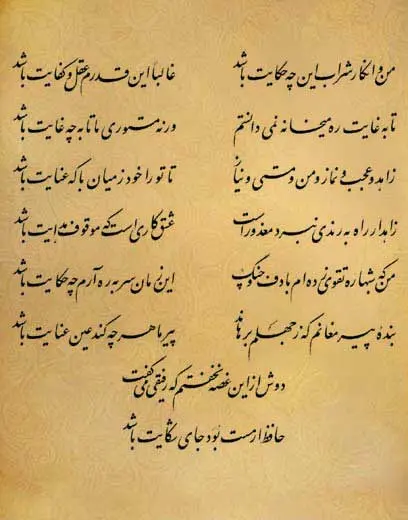 من و انکار شراب این چه حکایت باشد غالباً این قدرم عقل و کفایت باشد
تا به غایت ره میخانه نمی دانستم ورنه مستوری ما تا به چه غایت باشد
زاهد و عجب و نماز و من و مستی و نیاز تا تو را خود ز میان با که عنایت باشد
زاهد ار راه به رندی نبرد معذور است عشق کاری است که موقوف هدایت باشد
من که شبها ره تقوی زده ام با دف و چنگ این زمان سر به ره آرم چه حکایت باشد
بنده پیر مغانم که ز جهلم برهاند پیر ما هر چه کند عین عنایت باشد
دوش از این غصه نخفتم که رفیقی می گفت
حافظ ار مست بود جای شکایت باشد